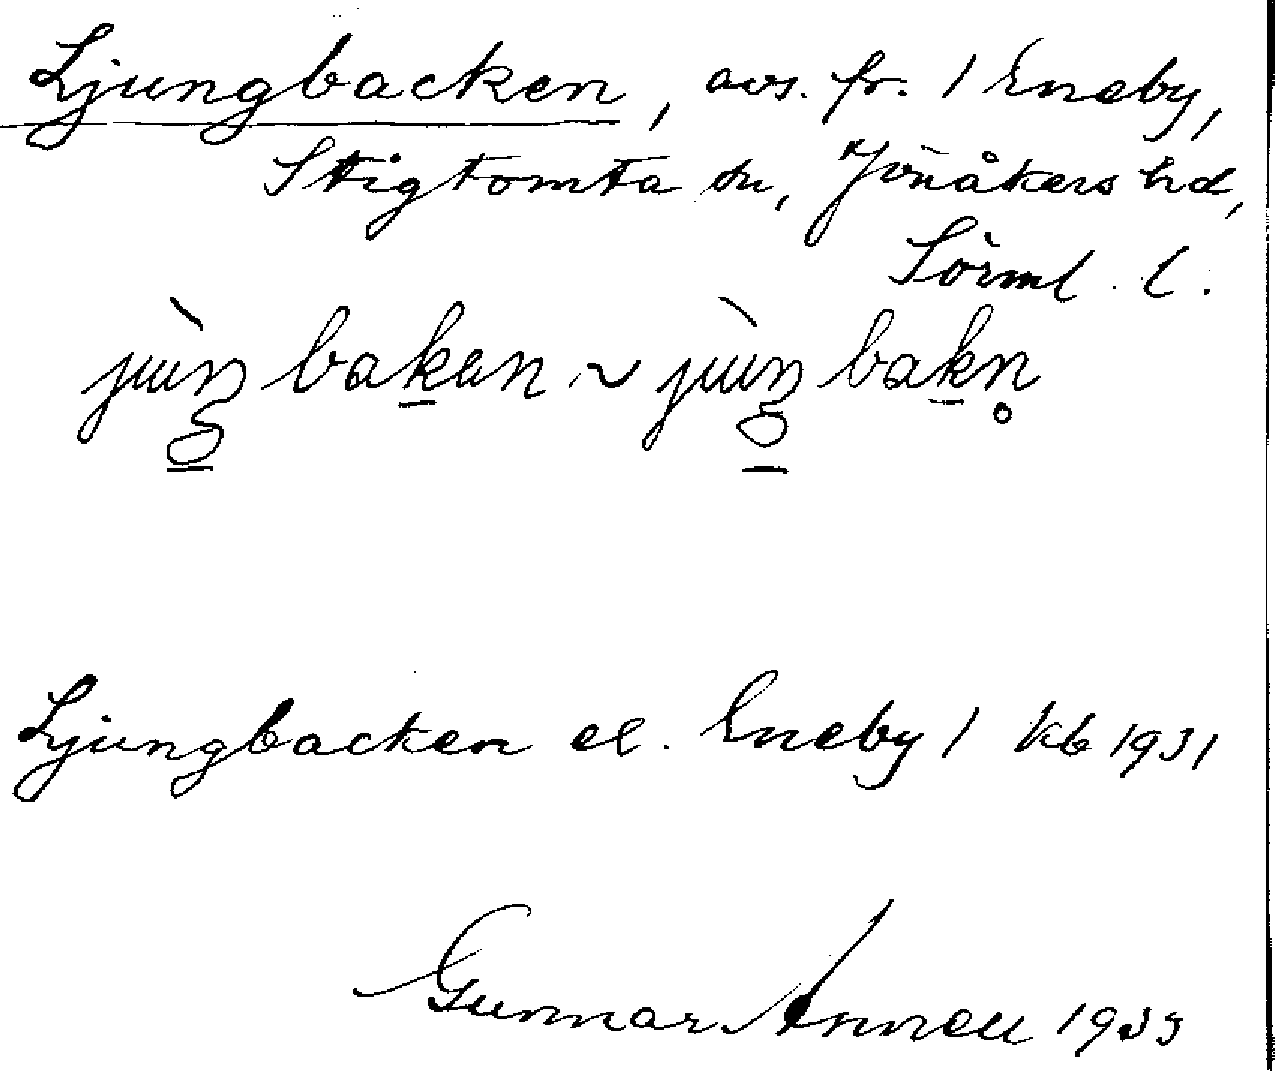 Ljungbacken, avs. fr. 1 Eneby,
Stigtomta sn, Jönåkers hd,
Sörml. l.
jùŋbakan ~ jùŋbakn̥
Ljungbacken el. Eneby 1 kb 1931
Gunnar Annell 1933